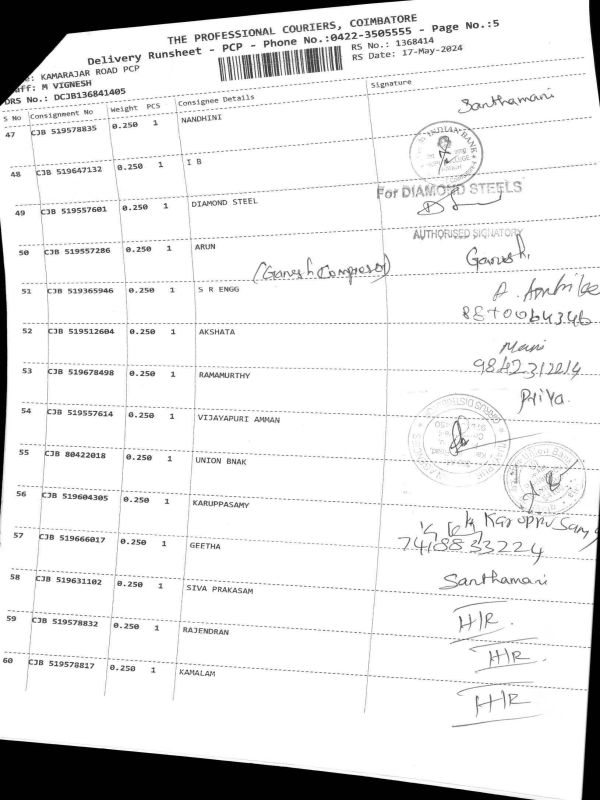 THE PROFESSIONAL COURIERS, COIMBATORE
Delivery Runsheet - PCP - Phone No.:0422-3505555 - Page No.:5
KAMARAJAR ROAD PCP
RS No.: 1368414
M VIGNESH
RS Date: 17-May-2024
DRS No.: DCJB136841405
S No Consignment No Weight PCS Consignee Details Signature
47 CJB 519578835 0.250 1 NANDHINI Santhamani
48 CJB 519647132 0.250 1 I B INDIAN BANK
49 CJB 519557601 0.250 1 DIAMOND STEEL For DIAMOND STEELS
AUTHORISED SIGNATORY
50 CJB 519557286 0.250 1 ARUN (Ganesh Compressor) Ganesh
51 CJB 519365946 0.250 1 S R ENGG
52 CJB 519512604 0.250 1 AKSHATA Mani
9842312214
53 CJB 519678498 0.250 1 RAMAMURTHY Priya
54 CJB 519557614 0.250 1 VIJAYAPURI AMMAN
55 CJB 80422018 0.250 1 UNION BNAK
56 CJB 519604305 0.250 1 KARUPPASAMY K Karuppusamy
57 CJB 519666017 0.250 1 GEETHA 7418833224
58 CJB 519631102 0.250 1 SIVA PRAKASAM Santhamani
59 CJB 519578832 0.250 1 RAJENDRAN H/R
H/R
60 CJB 519578817 0.250 1 KAMALAM H/R